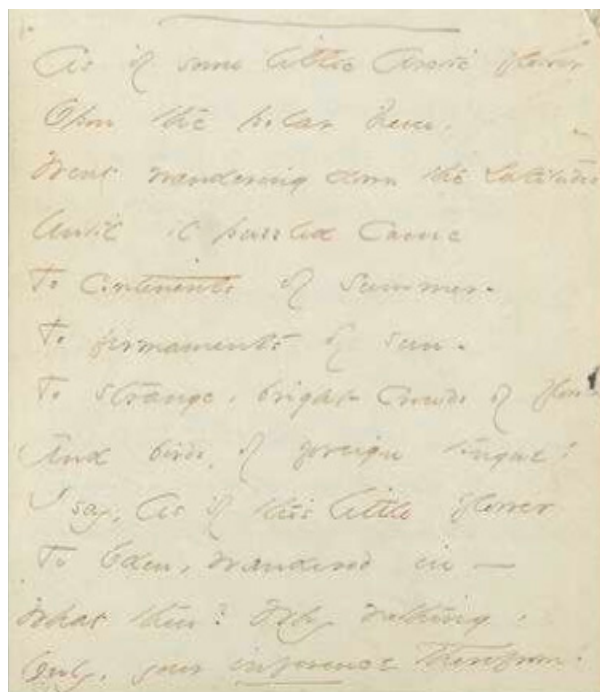 As if some little Arctic flower
Upon the polar hem -
Went wandering down the Latitudes
Until it puzzled came
To continents of summer -
To firmaments of sun -
To strange, bright crowds of flowers -
And birds, of foreign tongue!
I say, As if this little flower
To Eden, wandered in -
What then? Why nothing,
Only, your inference therefrom!